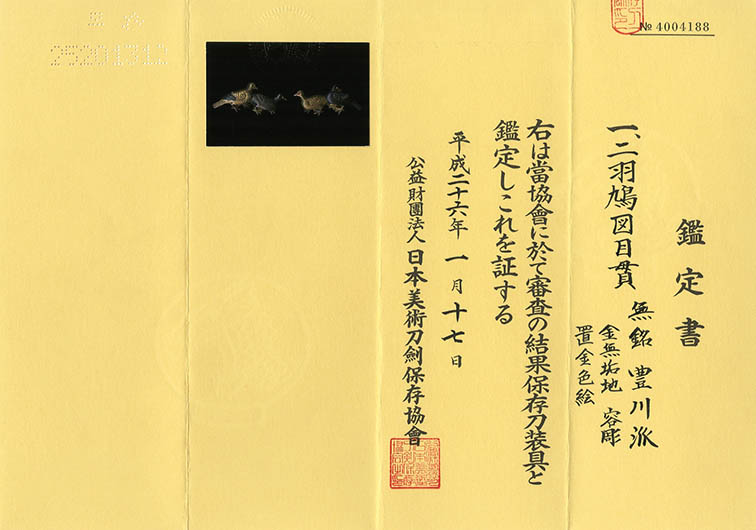 № 4004188
鑑定書
一、二羽鳩図目貫 無銘 豊川派
金無垢地 容彫
置金色絵
右は當協會に於て審査の結果保存刀装具と
鑑定しこれを証する
平成二十六年一月十七日
公益財團法人 日本美術刀劍保存協會
25201312